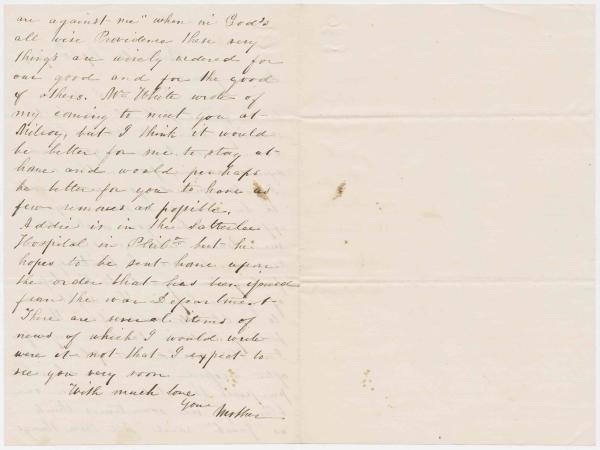 are against me" when in God's
all wise Providence these very
things are wisely ordered for
our good and for the good
of others. Mr. White wrote of
my coming to meet you at
Milroy, but I think it would
be better for me to stay at
home and would perhaps
be better for you to have as
few removes as possible.
Addie is in the Satterlee
Hospital in Phila but he
hopes to be sent home upon
the order that has been issued
from the war Department
There are several items of
news of which I would write
were it not that I expect to
see you very soon
With much love
Your Mother